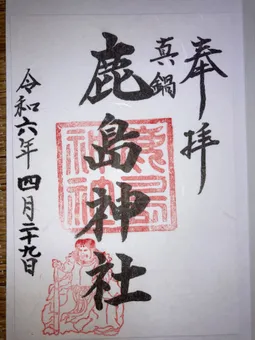 奉拝
真鍋
鹿島神社
令和六年四月二十九日